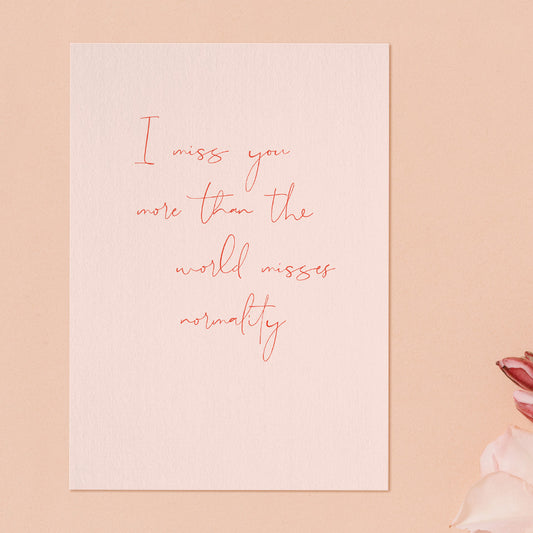 I miss you
more than the
world misses
normality